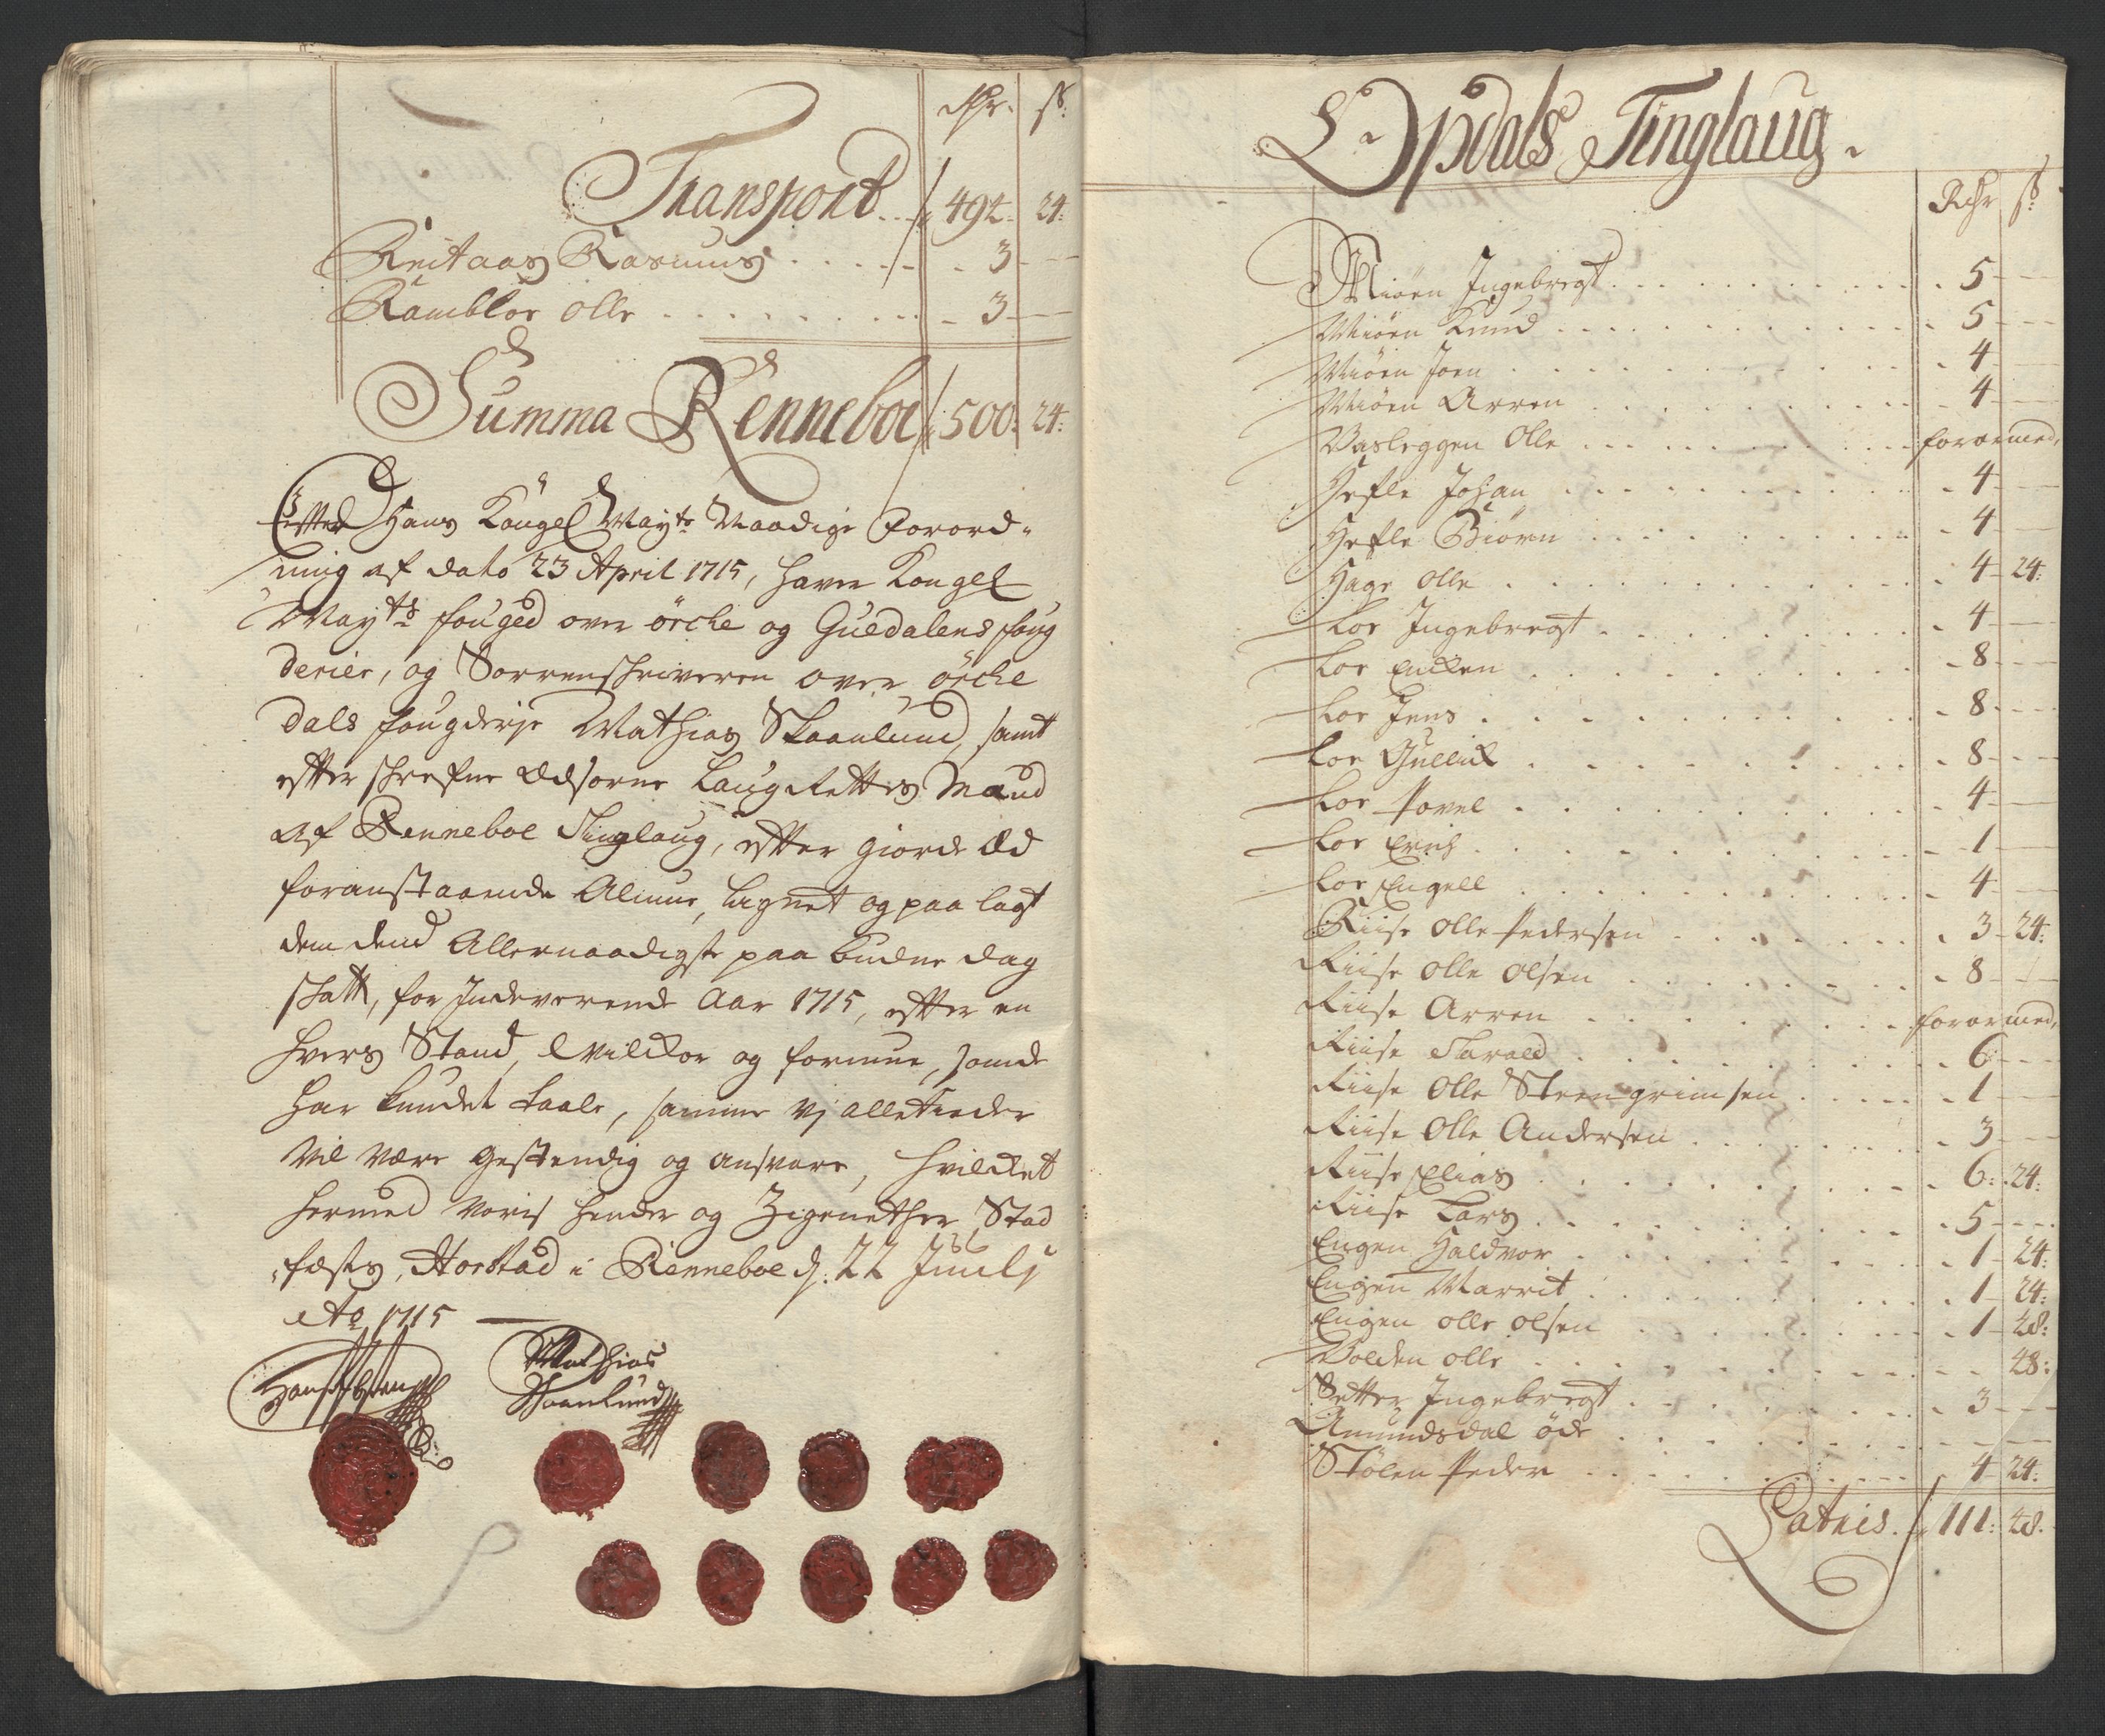 Rdr. ß.
Transport 494: 24:
Reitaas Rasmus 3
Rambloe Olle 3
Summa Renneboe 500: 24:
Efter Hans Kongel Mayts Naadige Forord-
ning af dato 23 April 1715, haver Kongel
Mayts fouged over örche og Guldalens foug
derier, og Sorrenschriveren over örche
dals fougderje Mathias Skaanlund, samt
efter schrefne Edsorne Laug Rettis Mænd
af Renneboe Tinglaug, efter giorde Eed
foranstaaende Almue, lignet og paa lagt
dem dend Allernaadigste paa budne dag
schatt, for Indeverende Aar 1715, efter en
hvers Stand, Vilckor og formue, som de
har kundet taale, samme Vj alletieder
Vil Være gestendig og ansvare, hvilcket
hermed Voris hender og Zignether Stad
fæste, Horstad i Renneboe d: 22 Junij
Ao 1715
Mathias
Skaanlund
Opdals Tinglaug.
Rdr ß.
Miøen Ingebregt 5
Miøen Knud 5
Miøen Joen 4
Miøen Arren 4
Vasleggen Olle forarmed,
Hefle Johan 4
Hefle Biørn 4
Hage Olle 4 24:
Loe Ingebregt 4
Loe Encken 8
Loe Jens 8
Loe Gullick 8
Loe Povel 4
Loe Erich 1
Loe Engell 4
Riise Olle Pedersen 3 24:
Riise Olle Olsen 8
Riise Arren forarmed,
Riise Harald 6
Riise Olle Steengrimsen 1
Riise Olle Andersen 3
Riise Elias 6: 24:
Riise Lars 5
Engen Haldvor 1 24:
Engen Marrit 1 24:
Engen Olle Olsen 1 48:
Volden Olle 48:
Setter Ingebregt 3
Amundsdal öde
Stölen Peder 4 24:
Lateris. 111: 48.